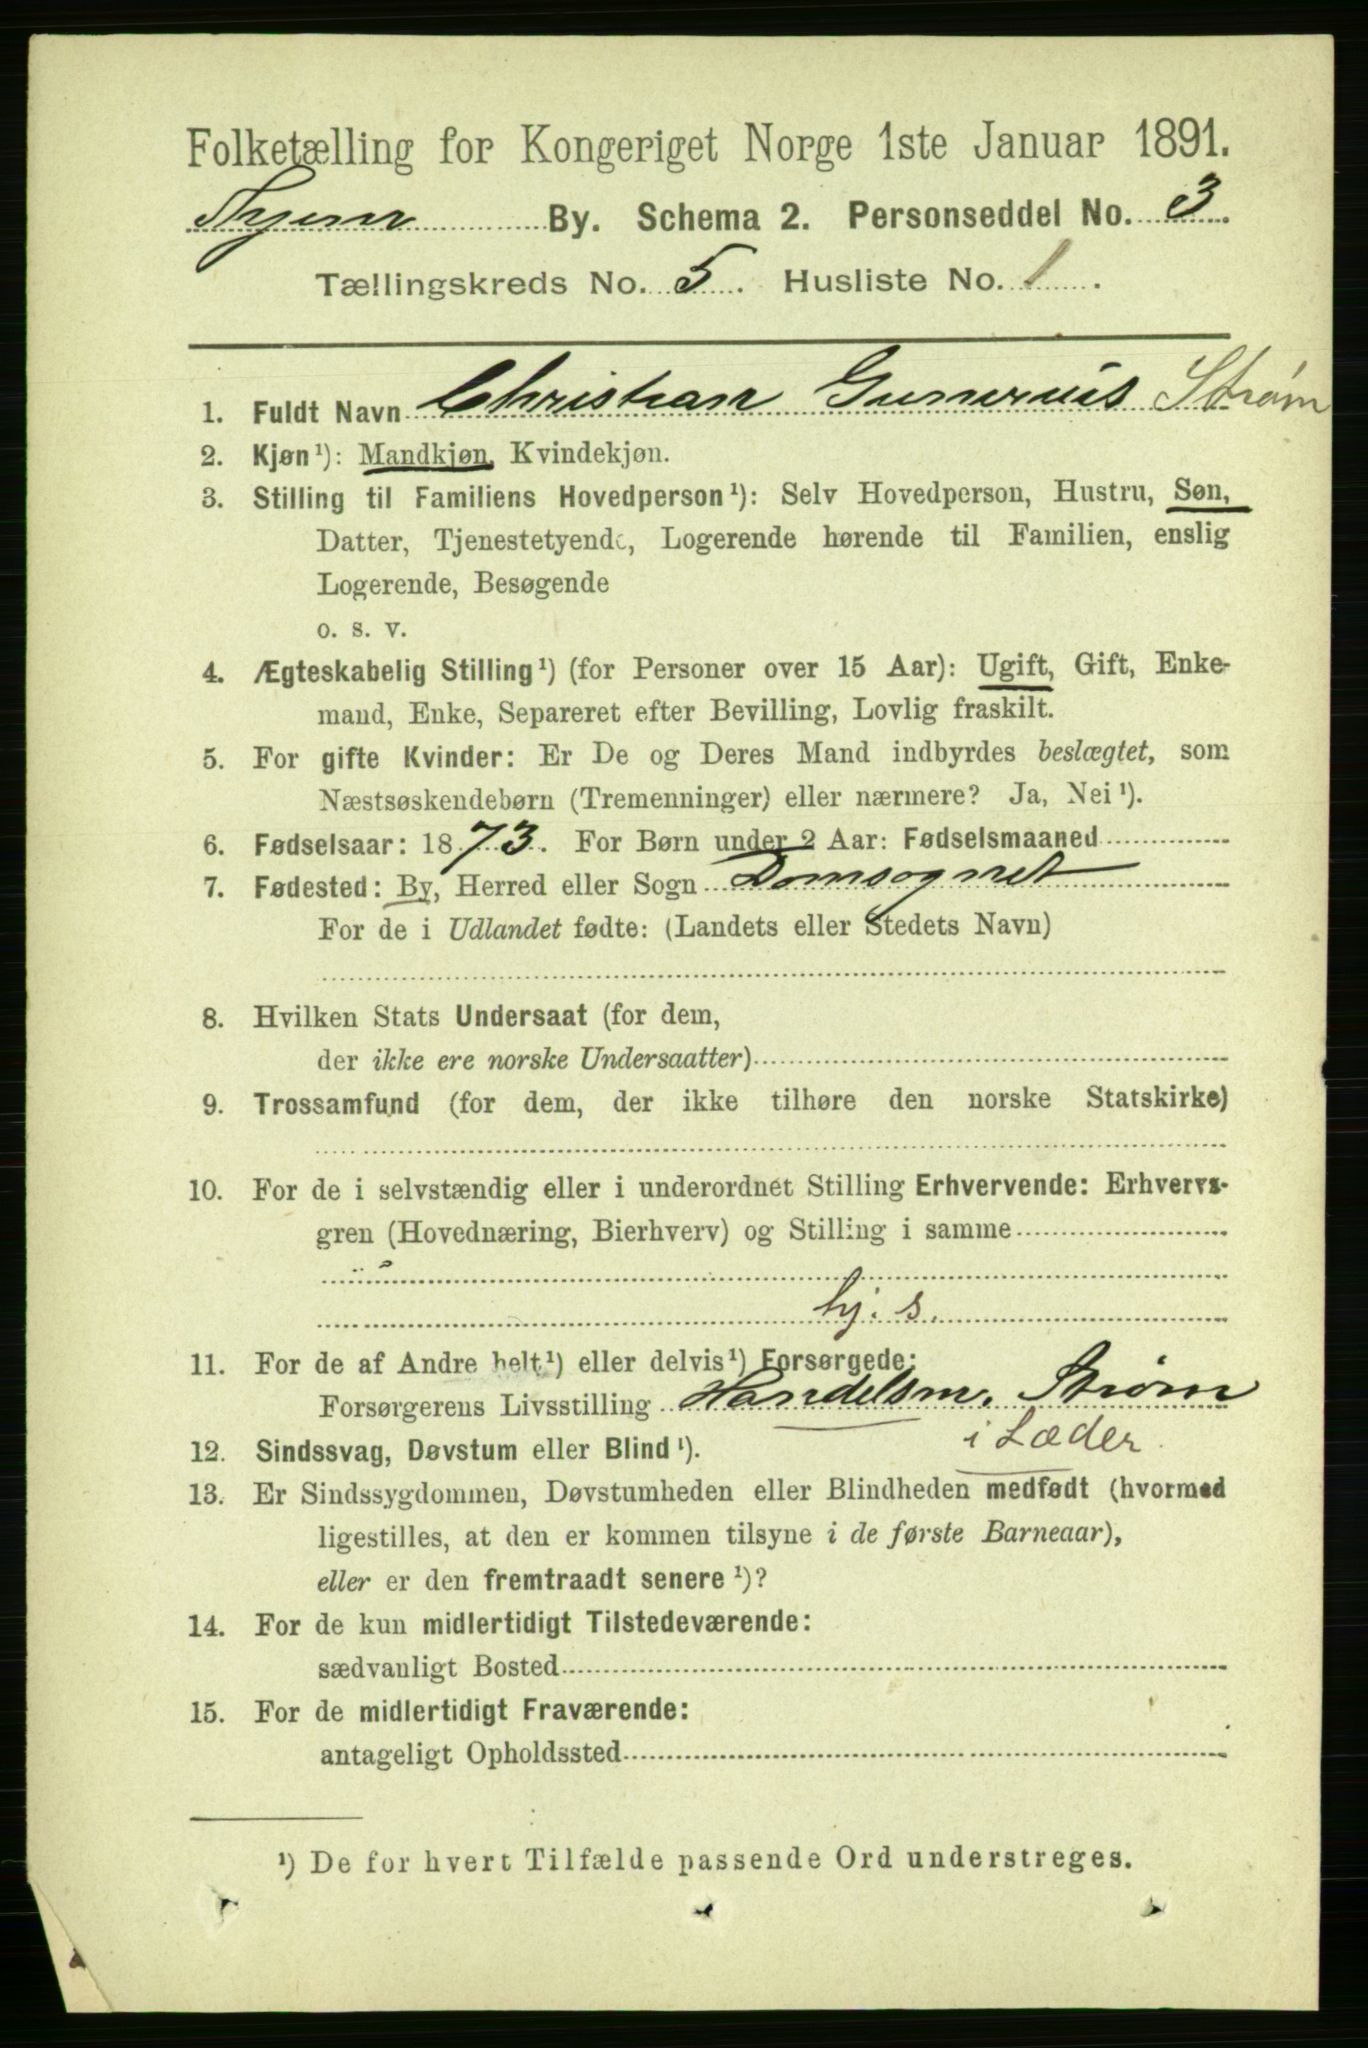 Folketælling for Kongeriget Norge 1ste Januar 1891.
By. Schema 2. Personseddel No. 3.
Tællingskreds No. 5. Husliste No. 1.
1. Fuldt Navn Christian Gunerius Strøm
2. Kjøn¹): Mandkjøn, Kvindekjøn.
3. Stilling til Familiens Hovedperson¹): Selv Hovedperson, Hustru, Søn,
Datter, Tjenestetyende, Logerende hørende til Familien, enslig
Logerende, Besøgende
o. s. v.
4. Ægteskabelig Stilling¹) (for Personer over 15 Aar): Ugift, Gift, Enke-
mand, Enke, Separeret efter Bevilling, Lovlig fraskilt.
5. For gifte Kvinder: Er De og Deres Mand indbyrdes beslægtet, som
Næstsøskendebørn (Tremenninger) eller nærmere? Ja, Nei¹).
6. Fødselsaar: 1873. For Børn under 2 Aar: Fødselsmaaned
7. Fødested: By, Herred eller Sogn Domsognet
For de i Udlandet fødte: (Landets eller Stedets Navn)
8. Hvilken Stats Undersaat (for dem,
der ikke ere norske Undersaatter)
9. Trossamfund (for dem, der ikke tilhøre den norske Statskirke)
10. For de i selvstændig eller i underordnet Stilling Erhvervende: Erhvervs-
gren (Hovednæring, Bierhverv) og Stilling i samme
hj. s.
11. For de af Andre helt¹) eller delvis¹) Forsørgede:
Forsørgerens Livsstilling Handelsm. Strøm
i Læder
12. Sindssvag, Døvstum eller Blind¹).
13. Er Sindssygdommen, Døvstumheden eller Blindheden medfødt (hvormed
ligestilles, at den er kommen tilsyne i de første Barneaar),
eller er den fremtraadt senere¹)?
14. For de kun midlertidigt Tilstedeværende:
sædvanligt Bosted
15. For de midlertidigt Fraværende:
antageligt Opholdssted
¹) De for hvert Tilfælde passende Ord understreges.